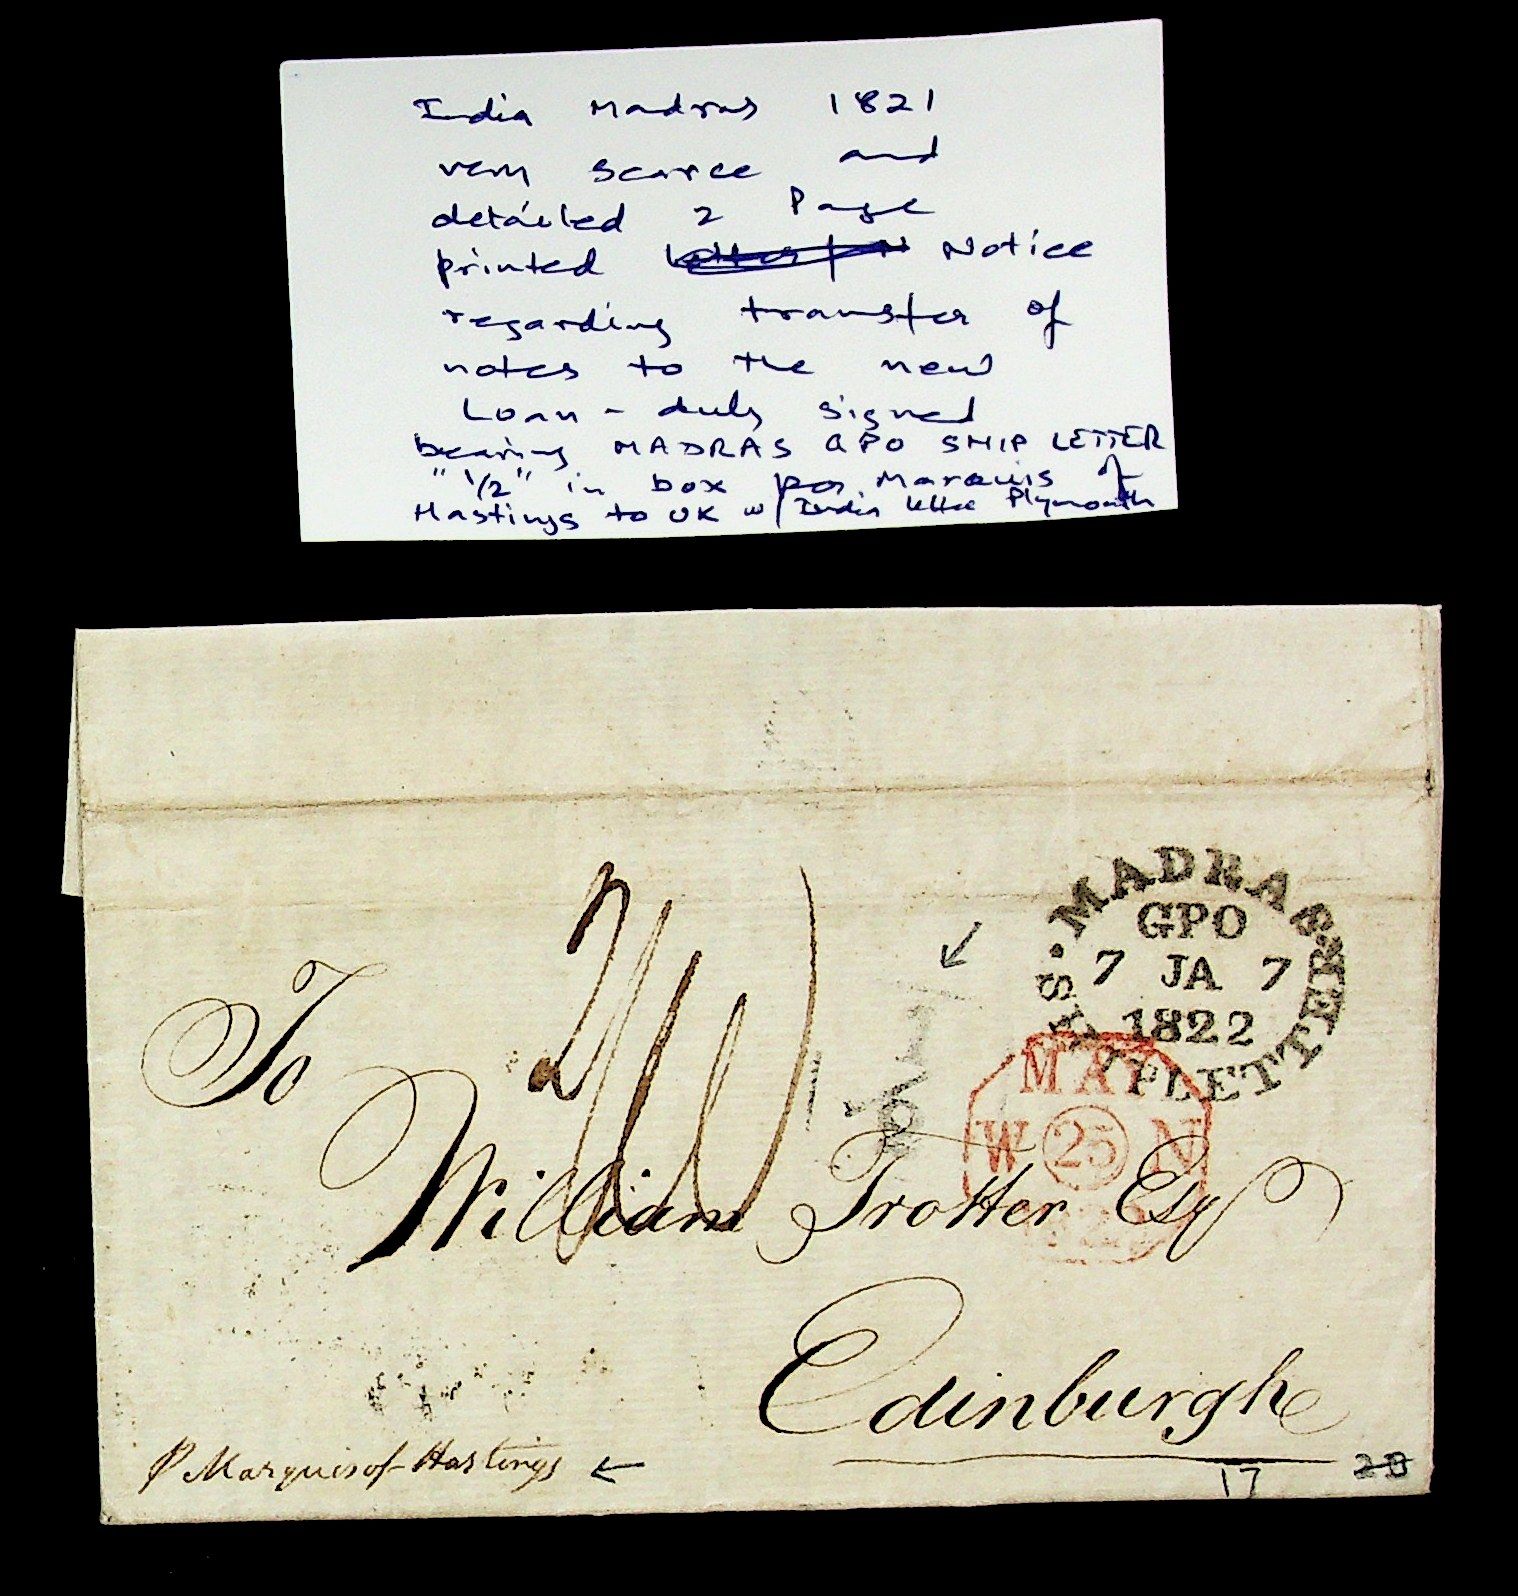 India Madras 1821
very scarce and
detailed 2 Page
printed Notice
regarding transfer of
notes to the new
Loan - duly signed
bearing MADRAS GPO SHIP LETTER
"1/2" in box per Marquis of
Hastings to UK w/ India letter Plymouth
MADRAS
GPO
7 JA 7
1822
LETTER
MAY
W 25 N
To
William Trotter Esqr
Edinburgh
P Marquis of Hastings
17
28